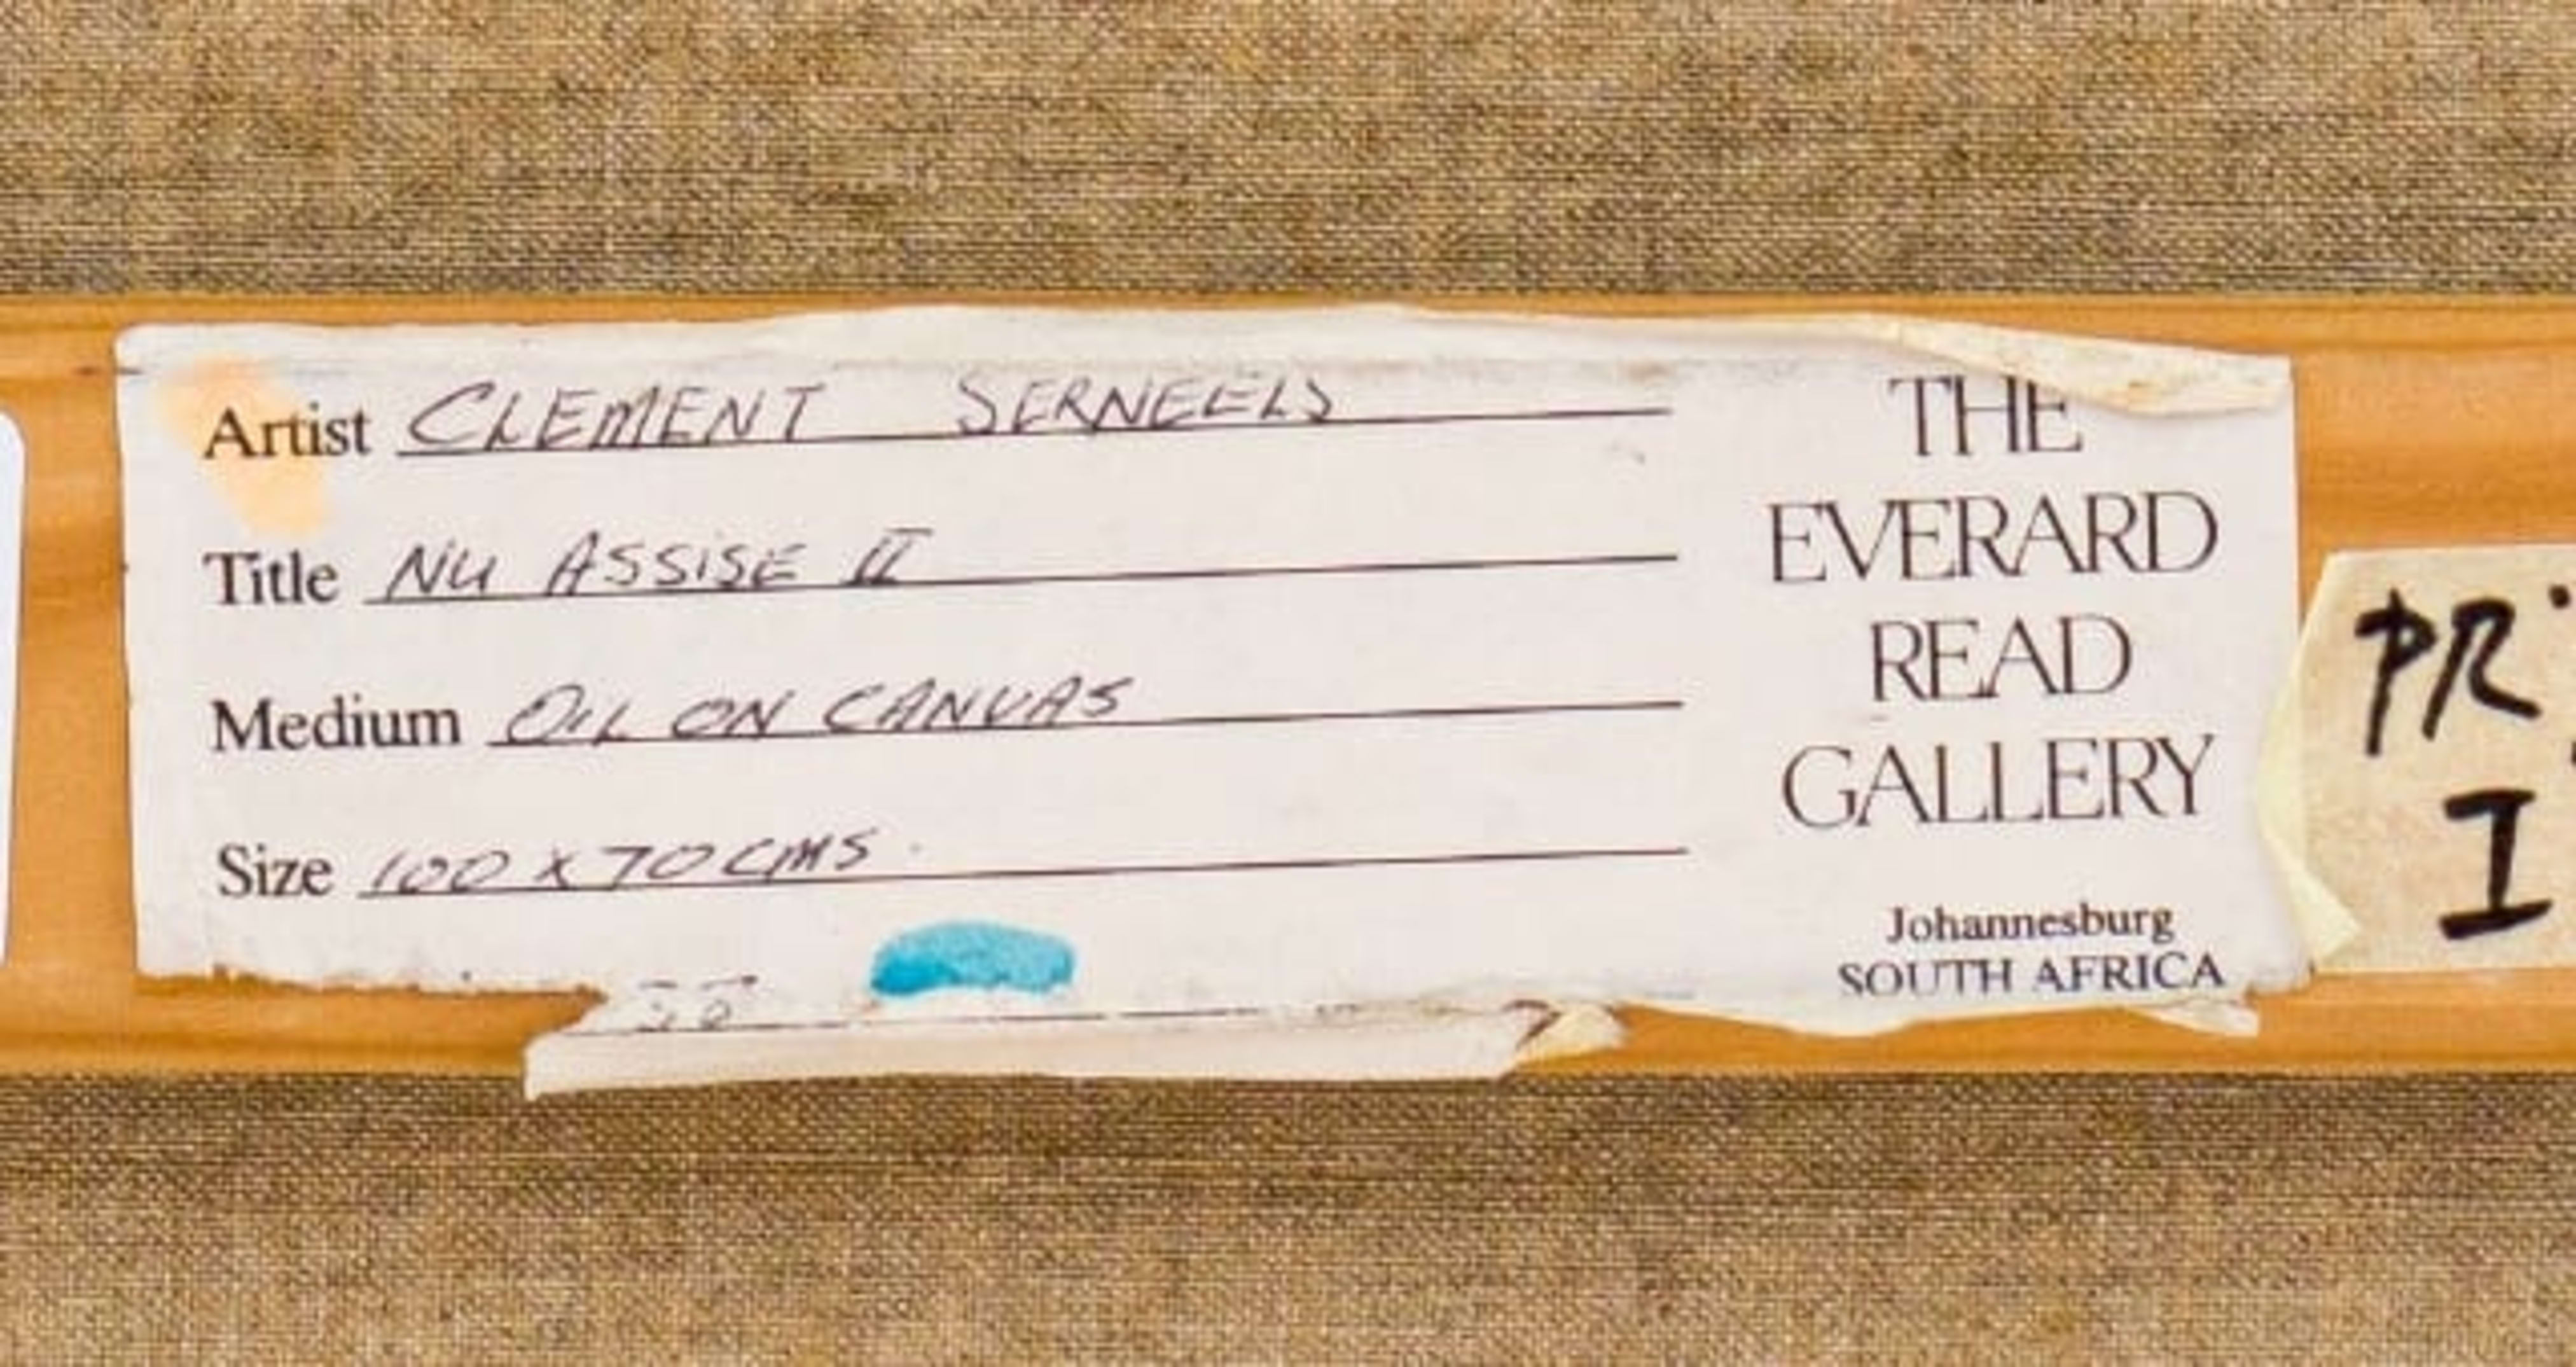 Artist CLEMENT SERNEELS
Title NU ASSISE II
Medium OIL ON CANVAS
Size 100 x 70 CMS.
THE
EVERARD
READ
GALLERY
Johannesburg
SOUTH AFRICA
PR
I